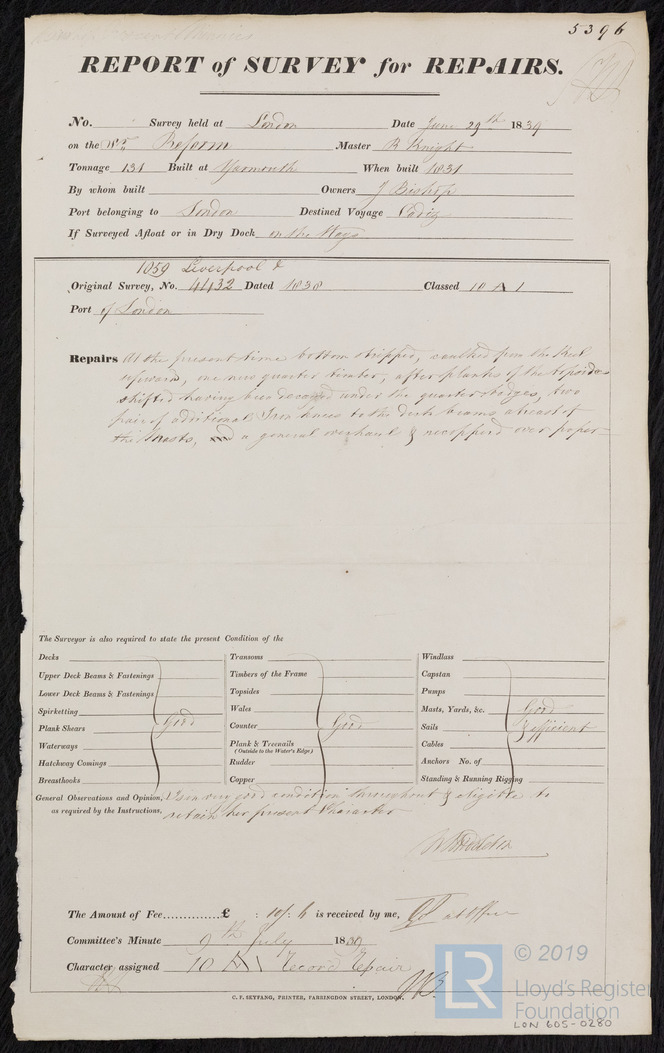 5396
REPORT of SURVEY for REPAIRS.
No. Survey held at London Date June 29th 1839
on the Reform Master R Knight
Tonnage 131 Built at Yarmouth When built 1831
By whom built Owners J Bishop
Port belonging to London Destined Voyage Cadiz
If Surveyed Afloat or in Dry Dock on the Ways
1059 Liverpool &
Original Survey, No. 4432 Dated 1838 Classed 10 A 1
Port of London
Repairs At the present time bottom stripped, caulked from the Keel
upward, one new quarter timber, after planks of the topsides
shifted having been decayed under the quarter badges, two
pair of additional Iron knees to the deck beams abreast of
the Masts, a general overhaul & recoppered over paper
The Surveyor is also required to state the present Condition of the
Decks Transoms Windlass
Upper Deck Beams & Fastenings Timbers of the Frame Capstan
Lower Deck Beams & Fastenings Topsides Pumps
Spirketting Wales Masts, Yards, &c. Good
Plank Shears Good Counter Good Sails & efficient
Waterways Plank & Treenails (Outside to the Water's Edge) Cables
Hatchway Comings Rudder Anchors No. of
Breasthooks Copper Standing & Running Rigging
General Observations and Opinion, Is in very good condition throughout & eligible to
as required by the Instructions, retain her present Character
The Amount of Fee..............£ : 10/. 6 is received by me, at Office
Committee's Minute 9th July 1839
Character assigned 10 A 1 Record Repairs
C. F. SEYFANG, PRINTER, FARRINGDON STREET, LONDON.
LR
© 2019
Lloyd's Register
Foundation
LON 605-0280